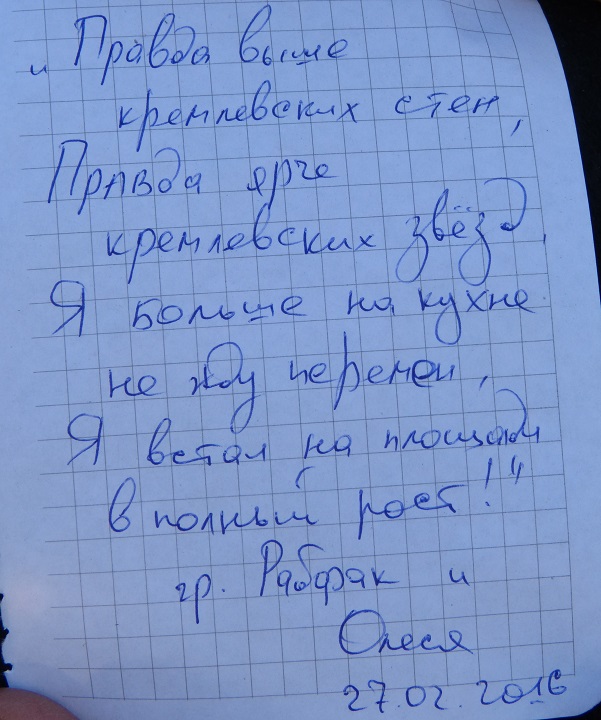 „Правда выше
кремлевских стен,
Правда ярче
кремлевских звёзд,
Я больше на кухне
не жду перемен,
Я встал на площади
в полный рост!"
гр. Рабфак и
Олеся
27.02.2016